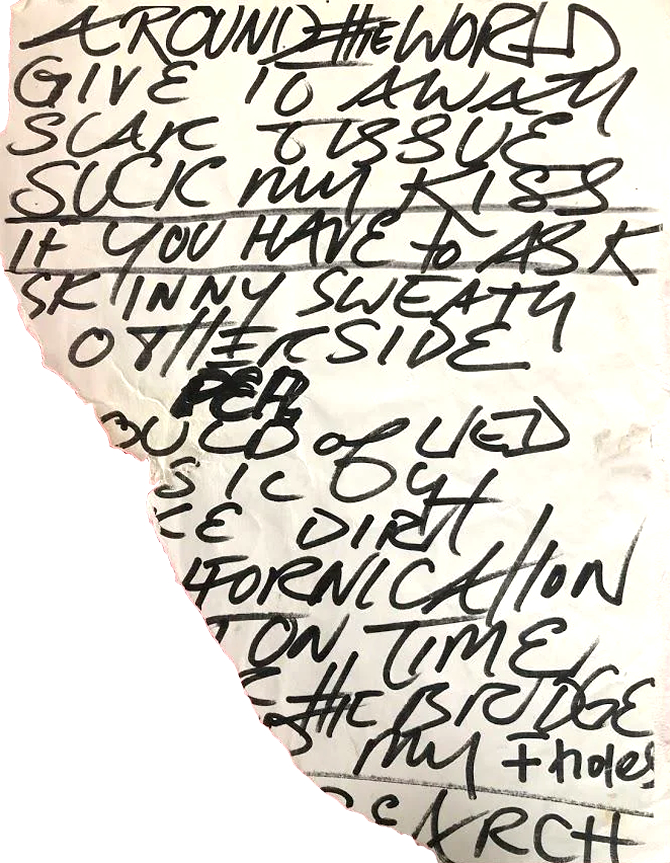 AROUND THE WORLD
GIVE IT AWAY
SCAR TISSUE
SUCK my KISS
If YOU HAVE to ASK
SKINNY SWEATY
OTHERSIDE
PEA
of
KE DIRt
IFORNICAtION
T ON TIME
THE BRIDGE
my
SEARCH